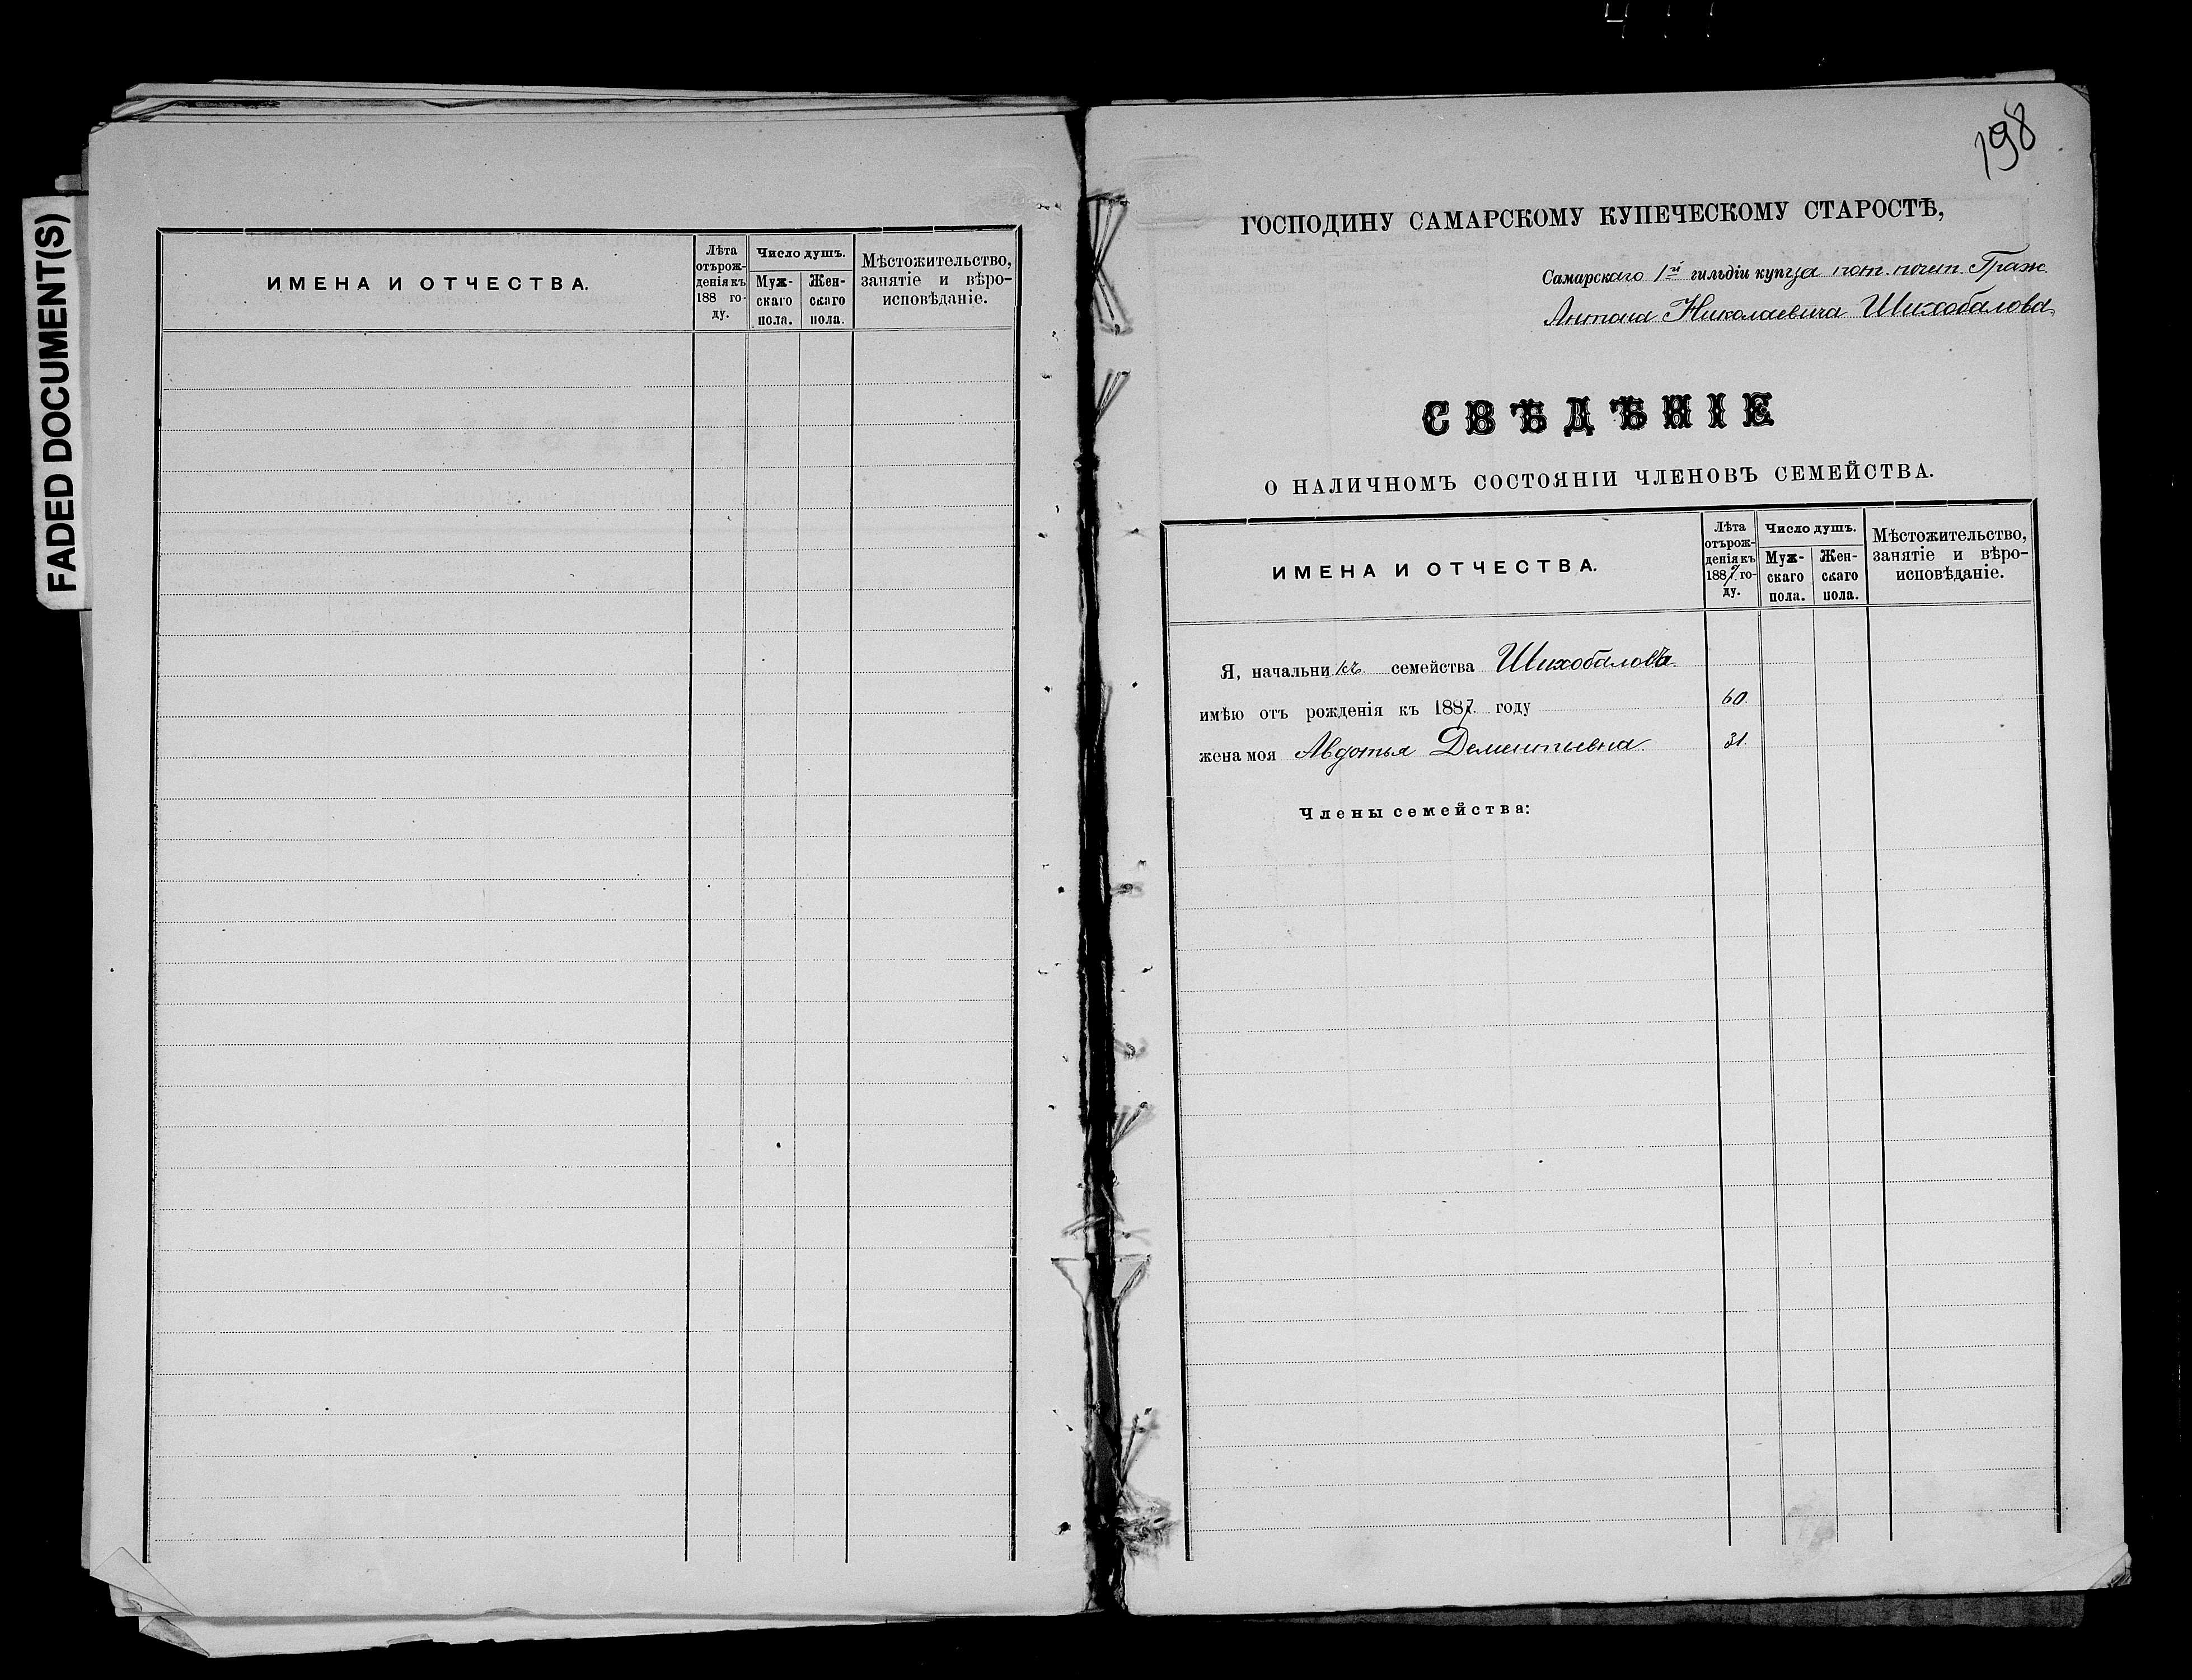 FADED DOCUMENT(S)
ИМЕНА И ОТЧЕСТВА.
Лѣта
отърож-
денія къ
188 го-
ду.
Число душъ.
Муж-
скаго
пола.
Жен-
скаго
пола.
Мѣстожительство,
занятіе и вѣро-
исповѣданіе.
198
ГОСПОДИНУ САМАРСКОМУ КУПЕЧЕСКОМУ СТАРОСТѢ,
Самарскаго 1й гильдіи купца пот. почет. Граж.
Антона Николаевича Шихобалова
СВѢДѢНІЕ
О НАЛИЧНОМЪ СОСТОЯНІИ ЧЛЕНОВЪ СЕМЕЙСТВА.
ИМЕНА И ОТЧЕСТВА.
Лѣта
отърож-
денія къ
1887 го-
ду.
Число душъ.
Муж-
скаго
пола.
Жен-
скаго
пола.
Мѣстожительство,
занятіе и вѣро-
исповѣданіе.
Я, начальникъ семейства Шихобаловъ
имѣю отъ рожденія къ 1887 году 60.
жена моя Авдотья Дементьевна 31.
Члены семейства: